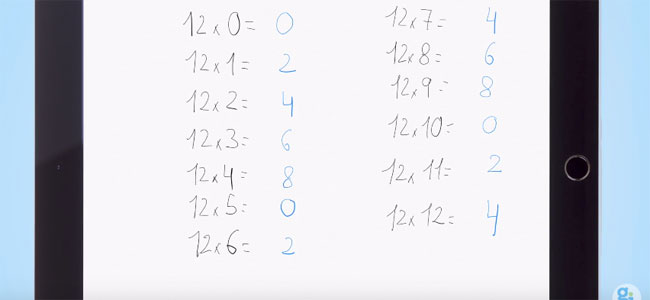 12x0= 0
12x1= 2
12x2= 4
12x3= 6
12x4= 8
12x5= 0
12x6= 2
12x7= 4
12x8= 6
12x9= 8
12x10= 0
12x11= 2
12x12= 4
g